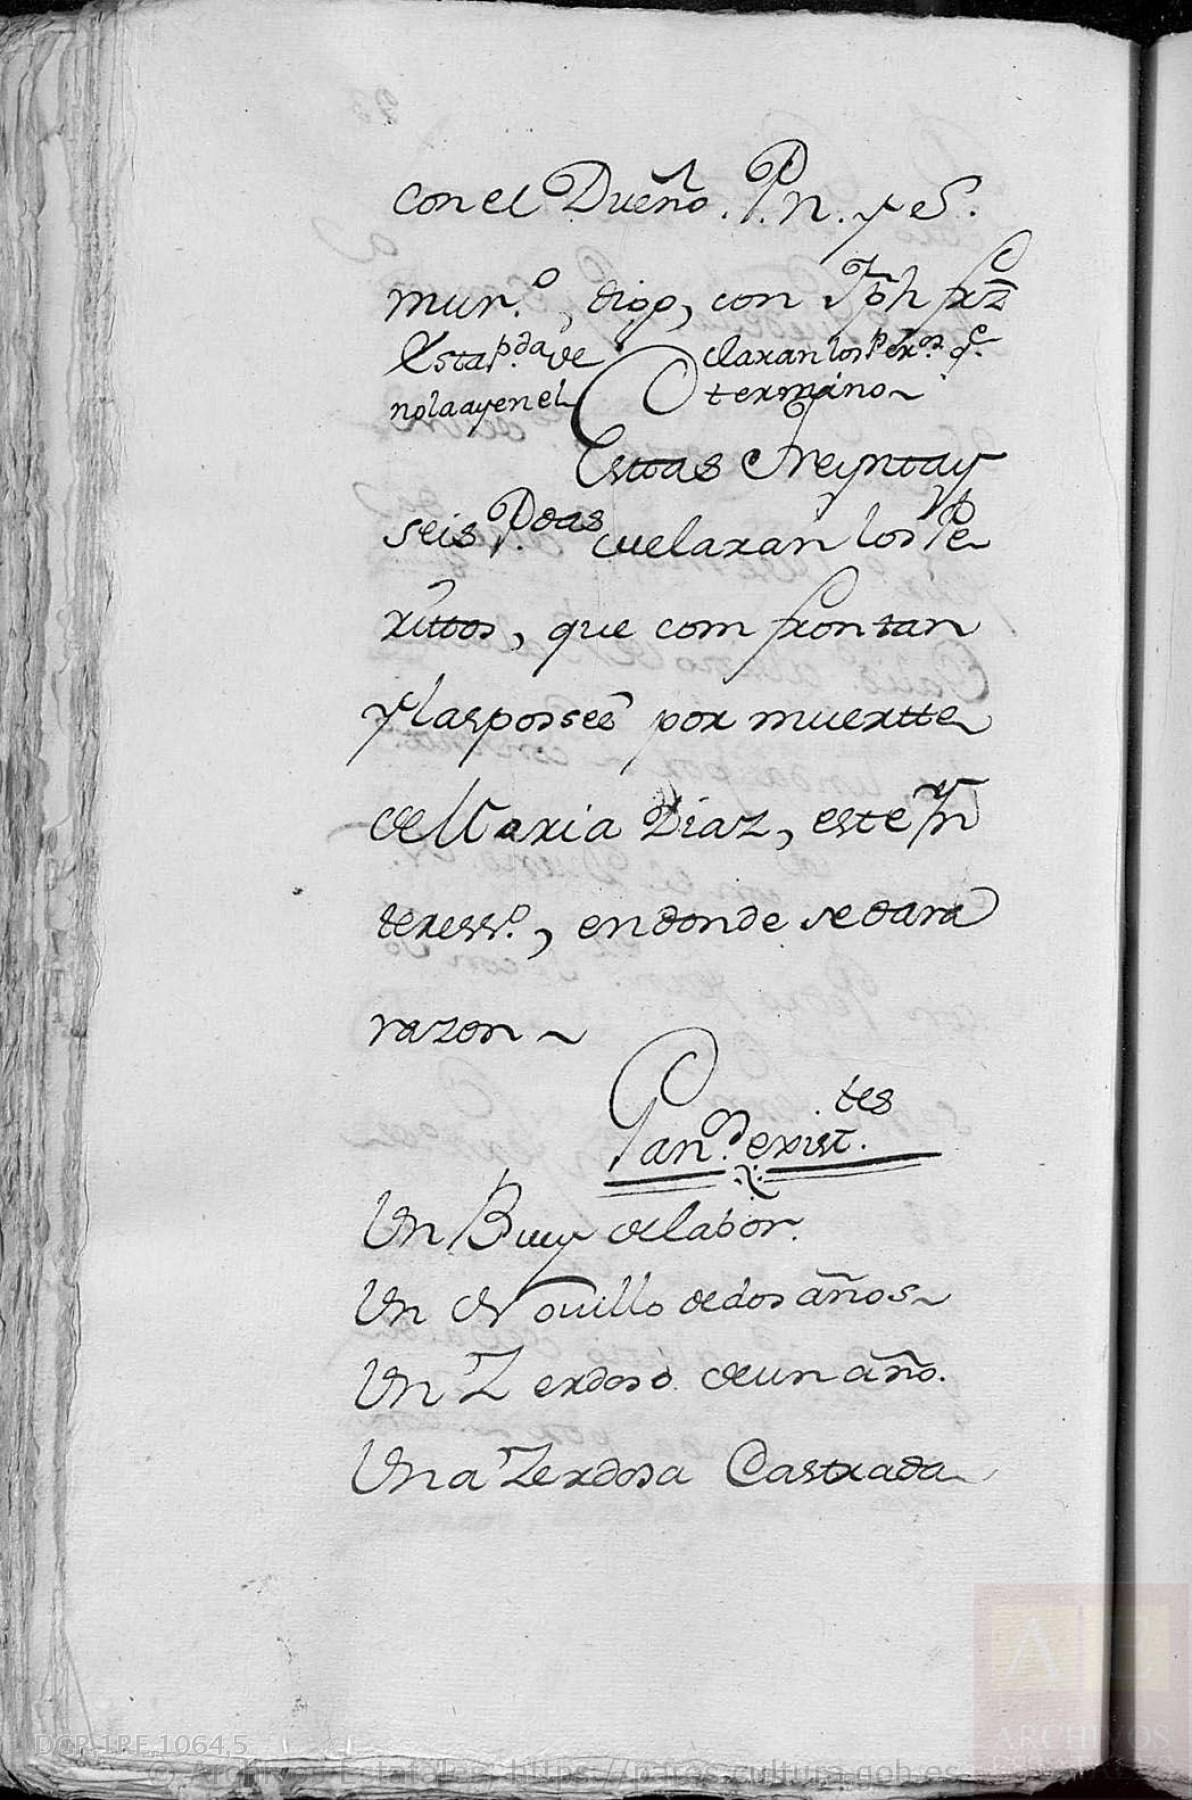 con el Dueño. P.n. y eS.
mur.º, digo, con Jph frz
Esta p.da de claran los Perᵒˢ. q.ᵉ
no la ay en el termino
Esttas treynta y
seis P.das declaran los Pe
rittos, que comfrontan
y las possee por muertte
de Maria Diaz, este Yn
teress.º, en donde se dara
razon
Gan.º exist.tes
Un Buey de labor.
Un Novillo de dos años
Un Zerdoso de un año.
Una Zerdosa Castrada
DGP-1RE,1064,5
© Archivos Estatales, https://pares.cultura.gob.es
AE
ARCHIVOS
ESTATALES